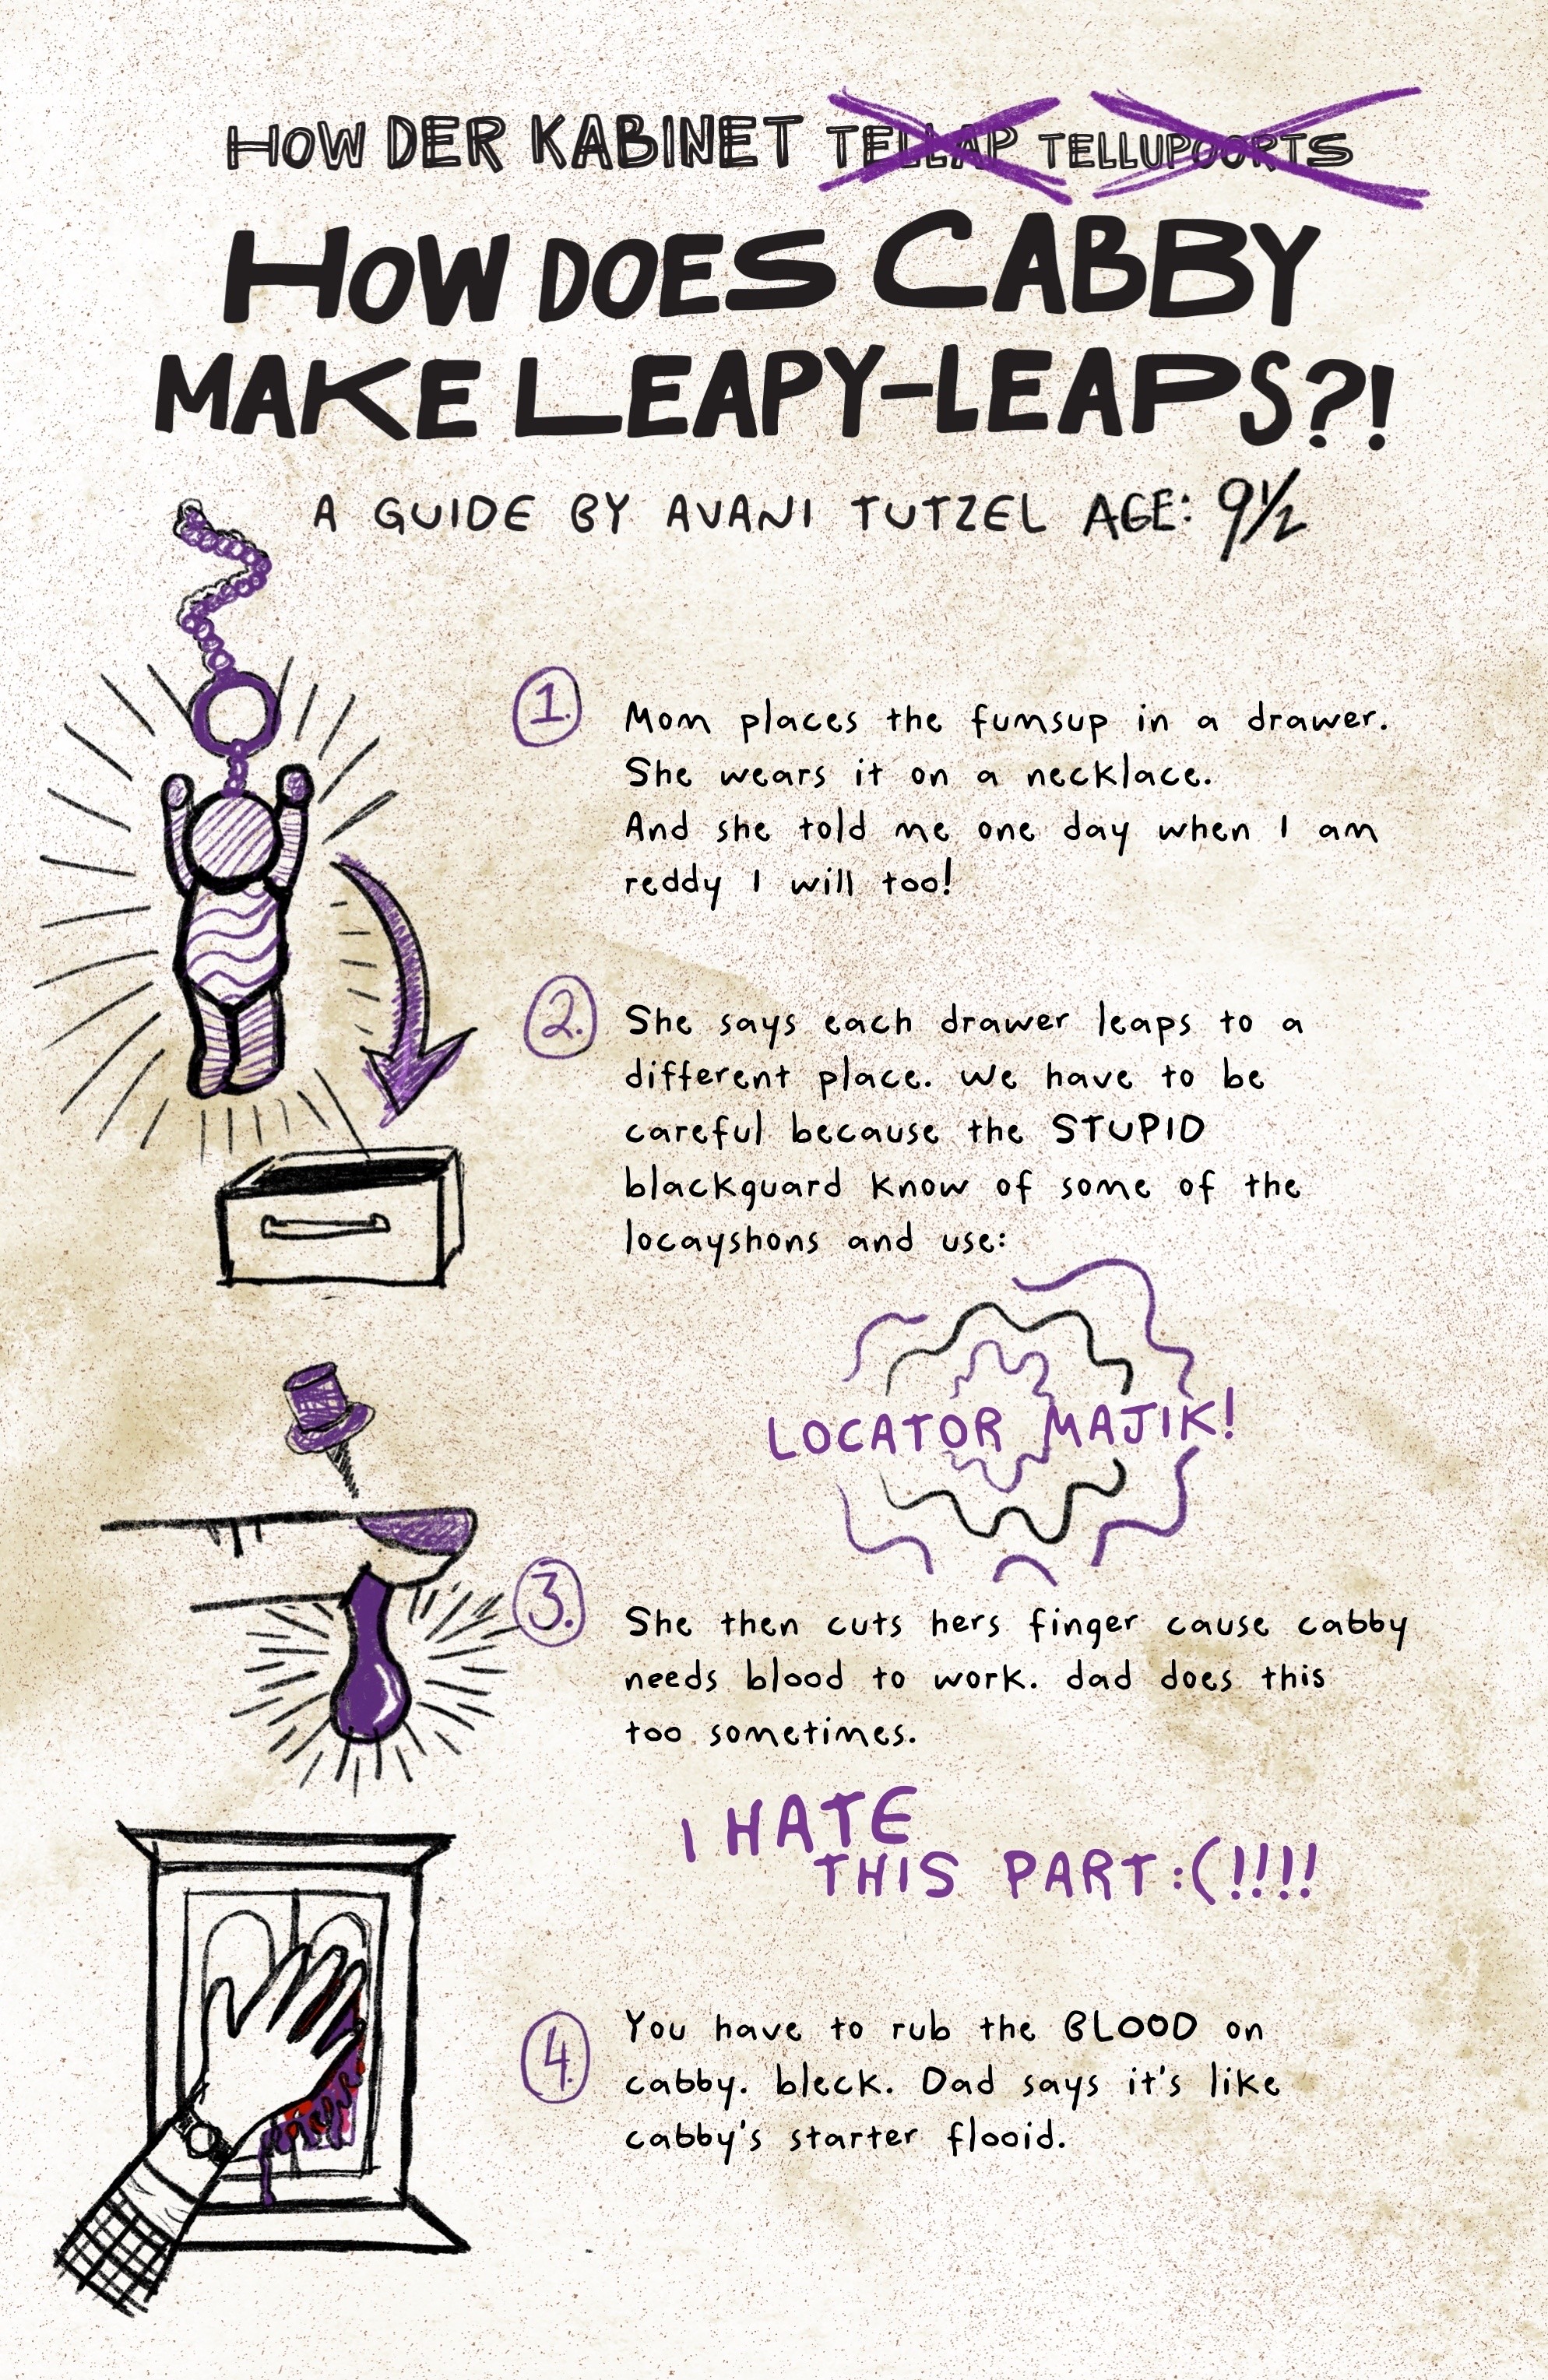 HOW DER KABINET TELLAP TELLUPOORTS
HOW DOES CABBY
MAKE LEAPY-LEAPS?!
A GUIDE BY AVANI TUTZEL AGE: 9½
1.
Mom places the fumsup in a drawer.
She wears it on a necklace.
And she told me one day when I am
reddy I will too!
2.
She says each drawer leaps to a
different place. We have to be
careful because the STUPID
blackguard know of some of the
locayshons and use:
LOCATOR MAJIK!
3.
She then cuts hers finger cause cabby
needs blood to work. dad does this
too sometimes.
I HATE
THIS PART :(!!!!
4.
You have to rub the BLOOD on
cabby. bleck. Dad says it's like
cabby's starter flooid.